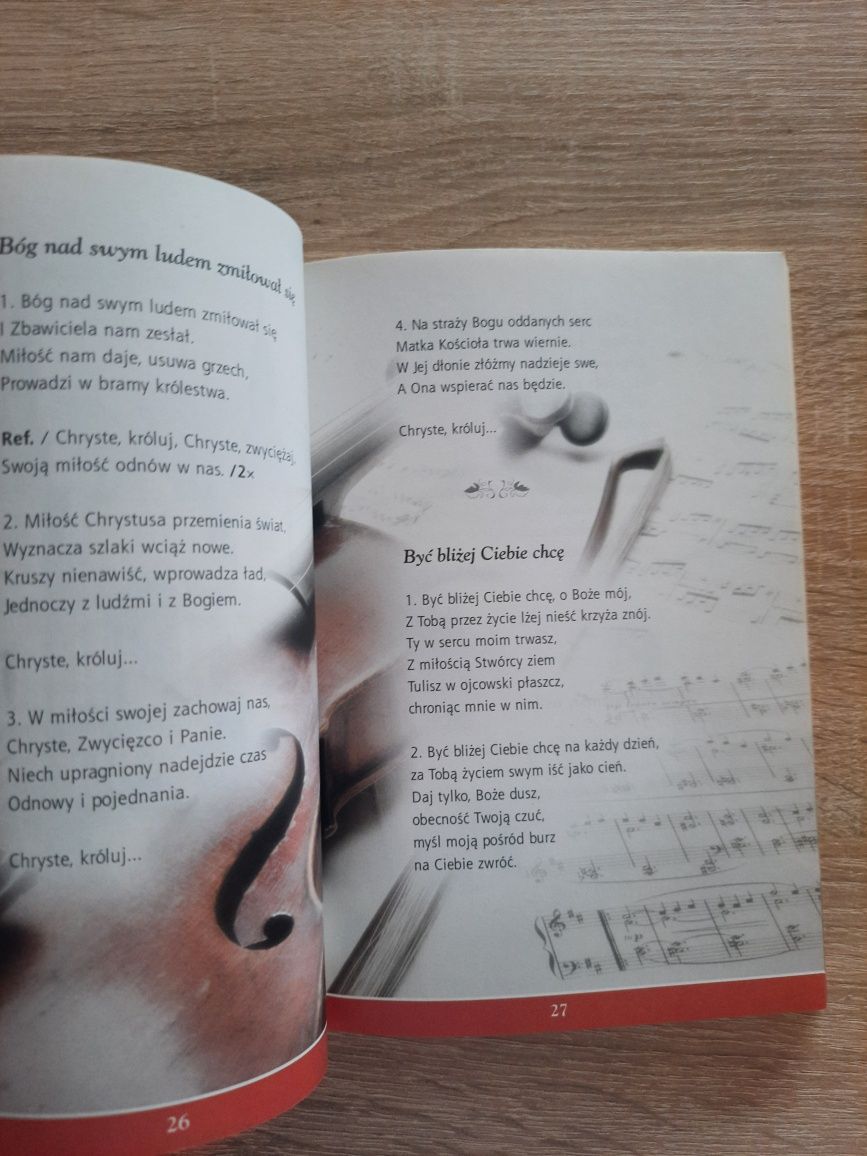 Bóg nad swym ludem zmiłował się
1. Bóg nad swym ludem zmiłował się
I Zbawiciela nam zesłał.
Miłość nam daje, usuwa grzech,
Prowadzi w bramy królestwa.
Ref. / Chryste, króluj, Chryste, zwyciężaj,
Swoją miłość odnów w nas. /2x
2. Miłość Chrystusa przemienia świat,
Wyznacza szlaki wciąż nowe.
Kruszy nienawiść, wprowadza ład,
Jednoczy z ludźmi i z Bogiem.
Chryste, króluj...
3. W miłości swojej zachowaj nas,
Chryste, Zwycięzco i Panie.
Niech upragniony nadejdzie czas
Odnowy i pojednania.
Chryste, króluj...
26
4. Na straży Bogu oddanych serc
Matka Kościoła trwa wiernie.
W Jej dłonie złóżmy nadzieje swe,
A Ona wspierać nas będzie.
Chryste, króluj...
Być bliżej Ciebie chcę
1. Być bliżej Ciebie chcę, o Boże mój,
Z Tobą przez życie lżej nieść krzyża znój.
Ty w sercu moim trwasz,
Z miłością Stwórcy ziem
Tulisz w ojcowski płaszcz,
chroniąc mnie w nim.
2. Być bliżej Ciebie chcę na każdy dzień,
za Tobą życiem swym iść jako cień.
Daj tylko, Boże dusz,
obecność Twoją czuć,
myśl moją pośród burz
na Ciebie zwróć.
27